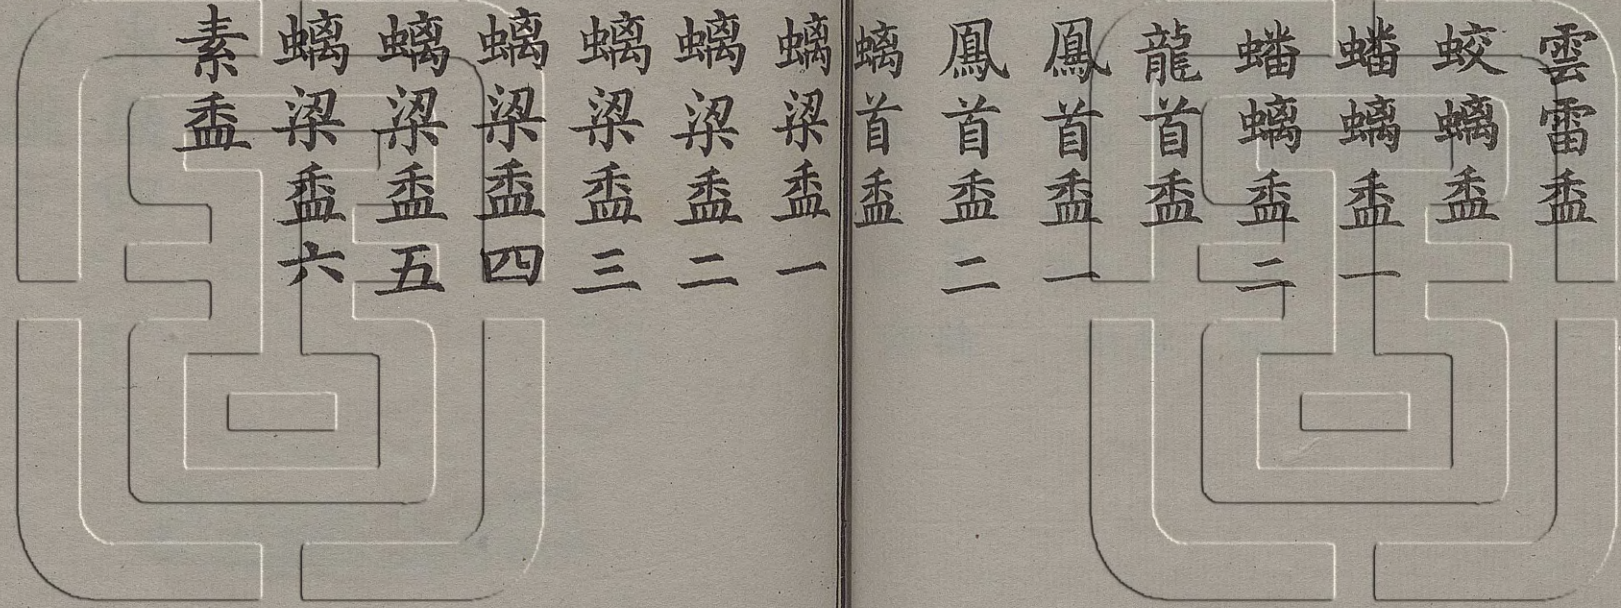 雲雷盉
蛟螭盉
蟠螭盉一
蟠螭盉二
龍首盉
鳳首盉一
鳳首盉二
螭首盉
螭梁盉一
螭梁盉二
螭梁盉三
螭梁盉四
螭梁盉五
螭梁盉六
素盉